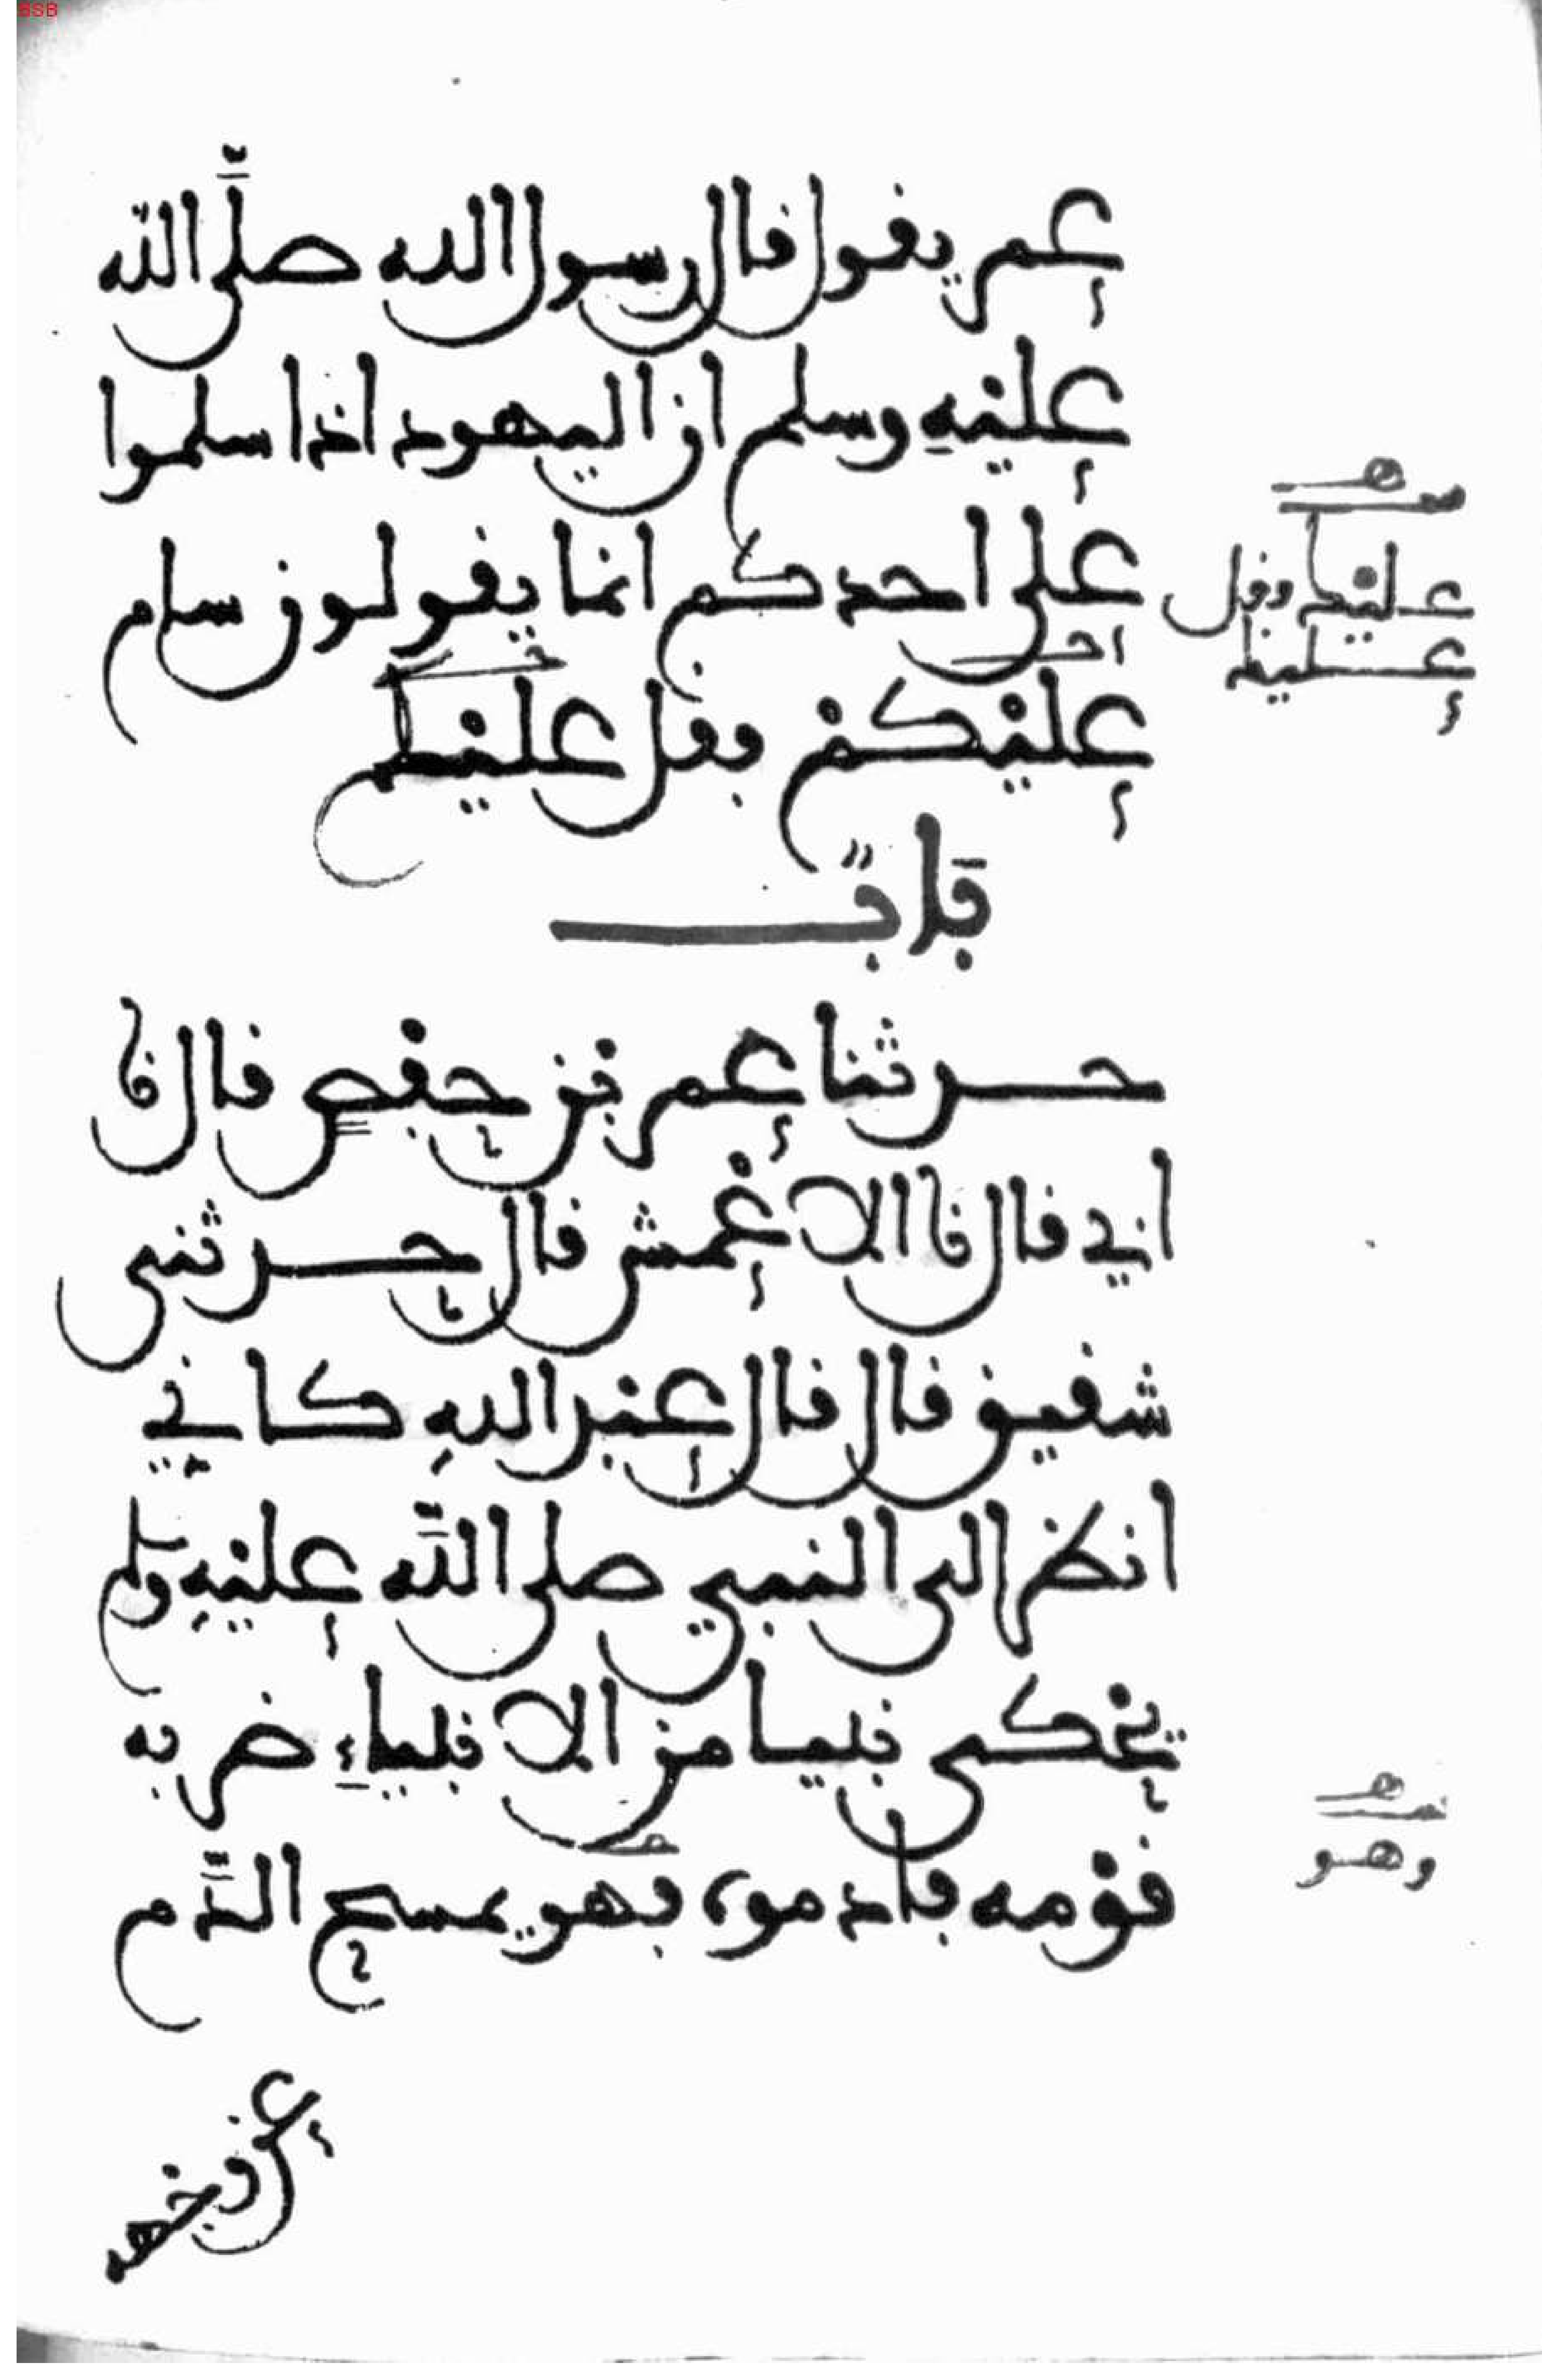 BSB
عمر يقول قال رسول الله صلى الله
عليه وسلم ان اليهود اذا سلموا
على احدكم انما يقولون سام
عليكم فقل عليكم
عليكم فقل
عليك
باب
حدثنا عمر بن حفص قال نا
ابي قال نا الاعمش قال حدثني
شقيق قال قال عبد الله كاني
انظر الى النبي صلى الله عليه وسلم
يحكي نبيا من الانبياء ضربه
قومه فادموه فهو يمسح الدم
وهو
عن وجهه